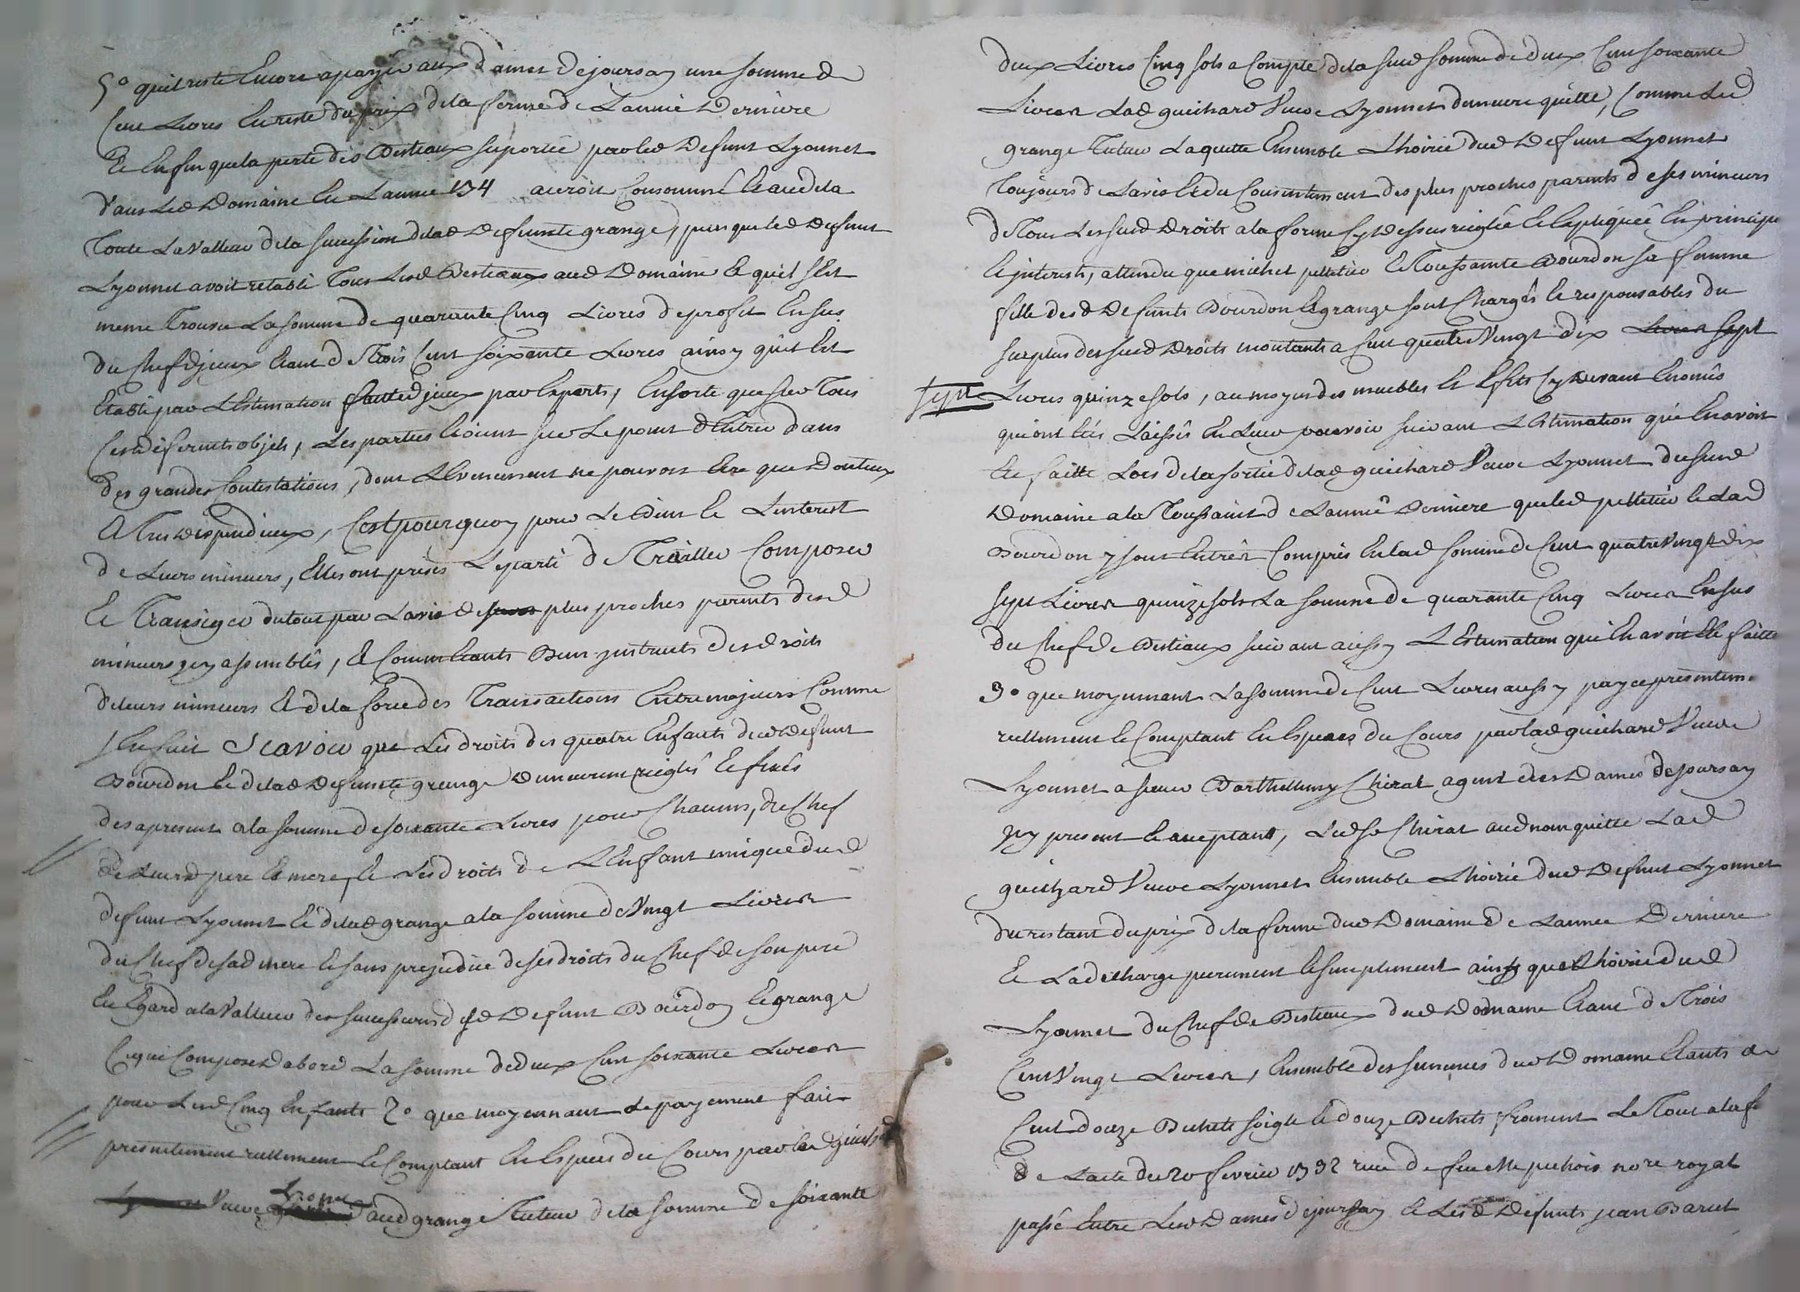 5° qu'il reste Encore a payer aux dames dejoursay une somme de
Cent Livres En reste du prix de la ferme de Lannée Derniere
Et Enfin que la perte des Bestiaux suportée par led Defunt Lyonnet
dans Led Domaine En Lannée 1734 auroit Consommé Et audela
Toute La valleur dela succession delad Defuncte grange, puis que led Defunt
Lyonnet avoit retabli Tous Lesd Bestiaux aud Domaine Et qu'il s'Est
meme Trouvé La somme de quarante Cinq Livres de profit En sus
du Chef d'jceux Etant de Trois Cent soixante Livres ainsy qu'il Est
Etabli par L'Estimation faite d'jceux par Experts, Ensorte que sur Tous
Ces diferents objets, Les parties Etoient sur Le point d'Entrer dans
des grandes Contestations, dont L'Evenement ne pouvoit Etre que Douteux
Et Tres dispendieux, C'est pourquoy pour Le bien Et L'interest
de Leurs mineurs, Elles ont prises Le parti de Traitter Composer
Et Transiger du tout par Lavis de plus proches parents desd
mineurs jcy assemblés, Et Comm Etants Bien jnstruits des droits
de leurs mineurs Et de la force des Transactions Entre majeurs Comme
s'Ensuit Scavoir que Les droits des quatre Enfants dud Defunt
Bourdon Et delad Defuncte grange demeurent reiglés Et fixés
des apresent a la somme de soixante Livres pour Chacuns, du Chef
de Leursd pere Et mere, Et Les droits de L'Enfant unique dud
defunt Lyonnet Et delad grange a la somme de Vingt Livres
du Chef de sad mere Et sans prejudice de ses droits du Chef de son pere
Eu Egard a la Valleur des successions desd Defunt Bourdon Et grange
Ce qui Compose Dabord La somme de deux Cent soixante Livres
pour Lesd Cinq Enfants 2° que moyennant Le payement fait
presentement reellement Et Comptant En Espèces du Cours par lad guichard
Veuve Lyonnet aud grange Tuteur de la somme de soixante
deux Livres Cinq sols a Compte de la susd somme de deux Cent soixante
Livres Lad guichard Veuve Lyonnet demeure quitte, Comme Led
grange Tuteur La quitte Ensemble L'hoirie dud Defunt Lyonnet
Toujours de Lavis Et du Consentement des plus proches parents de ses mineurs
de Tous Les susd Droits a la forme Cy dessus reiglée Et Expliquée En principe
Et jnterests, attendu que michel pelletier Et Toussainte Bourdon sa femme
fille desd Defunts Bourdon Et grange sont Chargés Et responsables du
surplus des susd Droits montants a Cent quatre Vingt dix Livres sept
sept Livres quinze sols, au moyen des meubles Et Effets Cy devant Enoncés
qui ont Etés Laissés En Leur pouvoir suivant L'Estimation qui En avoit
Eté faitte Lors de la sortie delad guichard Veuve Lyonnet du susd
Domaine a la Toussaint de Lannée Derniere que led pelletier Et Lad
Bourdon y sont Entrés Compris En lad somme de Cent quatre Vingt dix
sept Livres quinze sols La somme de quarante Cinq Livres En sus
du Chef de Bestiaux suivant aussy L'Estimation qui En avoit Eté faitte
3° que moyennant La somme de Cent Livres aussy payée presentem.
reellement Et Comptant En Espèces du Cours par lad guichard Veuve
Lyonnet a sieur Barthelemy Chirat agent desd Dames dejoursay
jcy present Et acceptant, Led sr Chirat aud nom quitte Lad
guichard Veuve Lyonnet Ensemble L'hoirie dud Defunt Lyonnet
du restant du prix de la ferme dud Domaine de Lannée Derniere
Et La decharge purement Et simplement ainsy que L'hoirie dud
Lyonnet du Chef de Bestiaux dud Domaine Etant de Trois
Cent Vingt Livres, Ensemble des semences dud Domaine Etants de
Cent douze Bichets soigle Et douze Bichets froment Le Tout a la fe
de Lacte du 20 fevrier 1732 receu de feu Me puhois nore royal
passé Entre Lesd Dames dejoursay Et Lesd Defunts jean Barlet